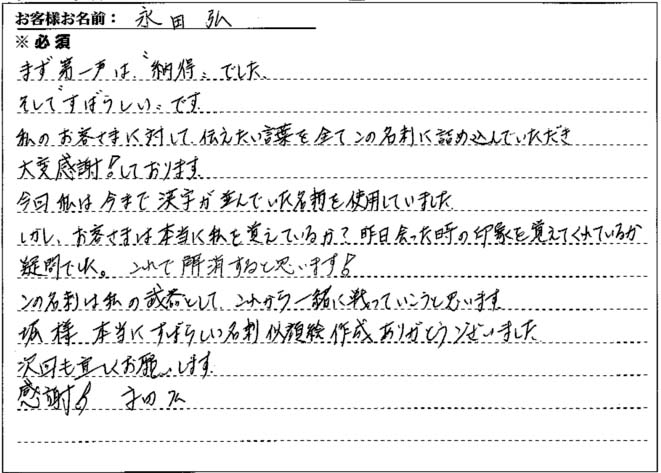 お客様お名前： 永田 弘
※必須
まず第一声は、"納得"でした。
そして"すばらしい"です。
私のお客さまに対して、伝えたい言葉を全てこの名刺に詰め込んでいただき
大変感謝!しております。
今回私は今まで漢字が並んでいた名刺を使用していました。
しかし、お客さまは本当に私を覚えているか？昨日会った時の印象を覚えてくれているか
疑問でした。これで解消すると思います!
この名刺は私の武器として、これから一緒に戦っていこうと思います
坂様 本当にすばらしい名刺似顔絵作成ありがとうございました
次回も宜しくお願いします。
感謝!! 永田 弘